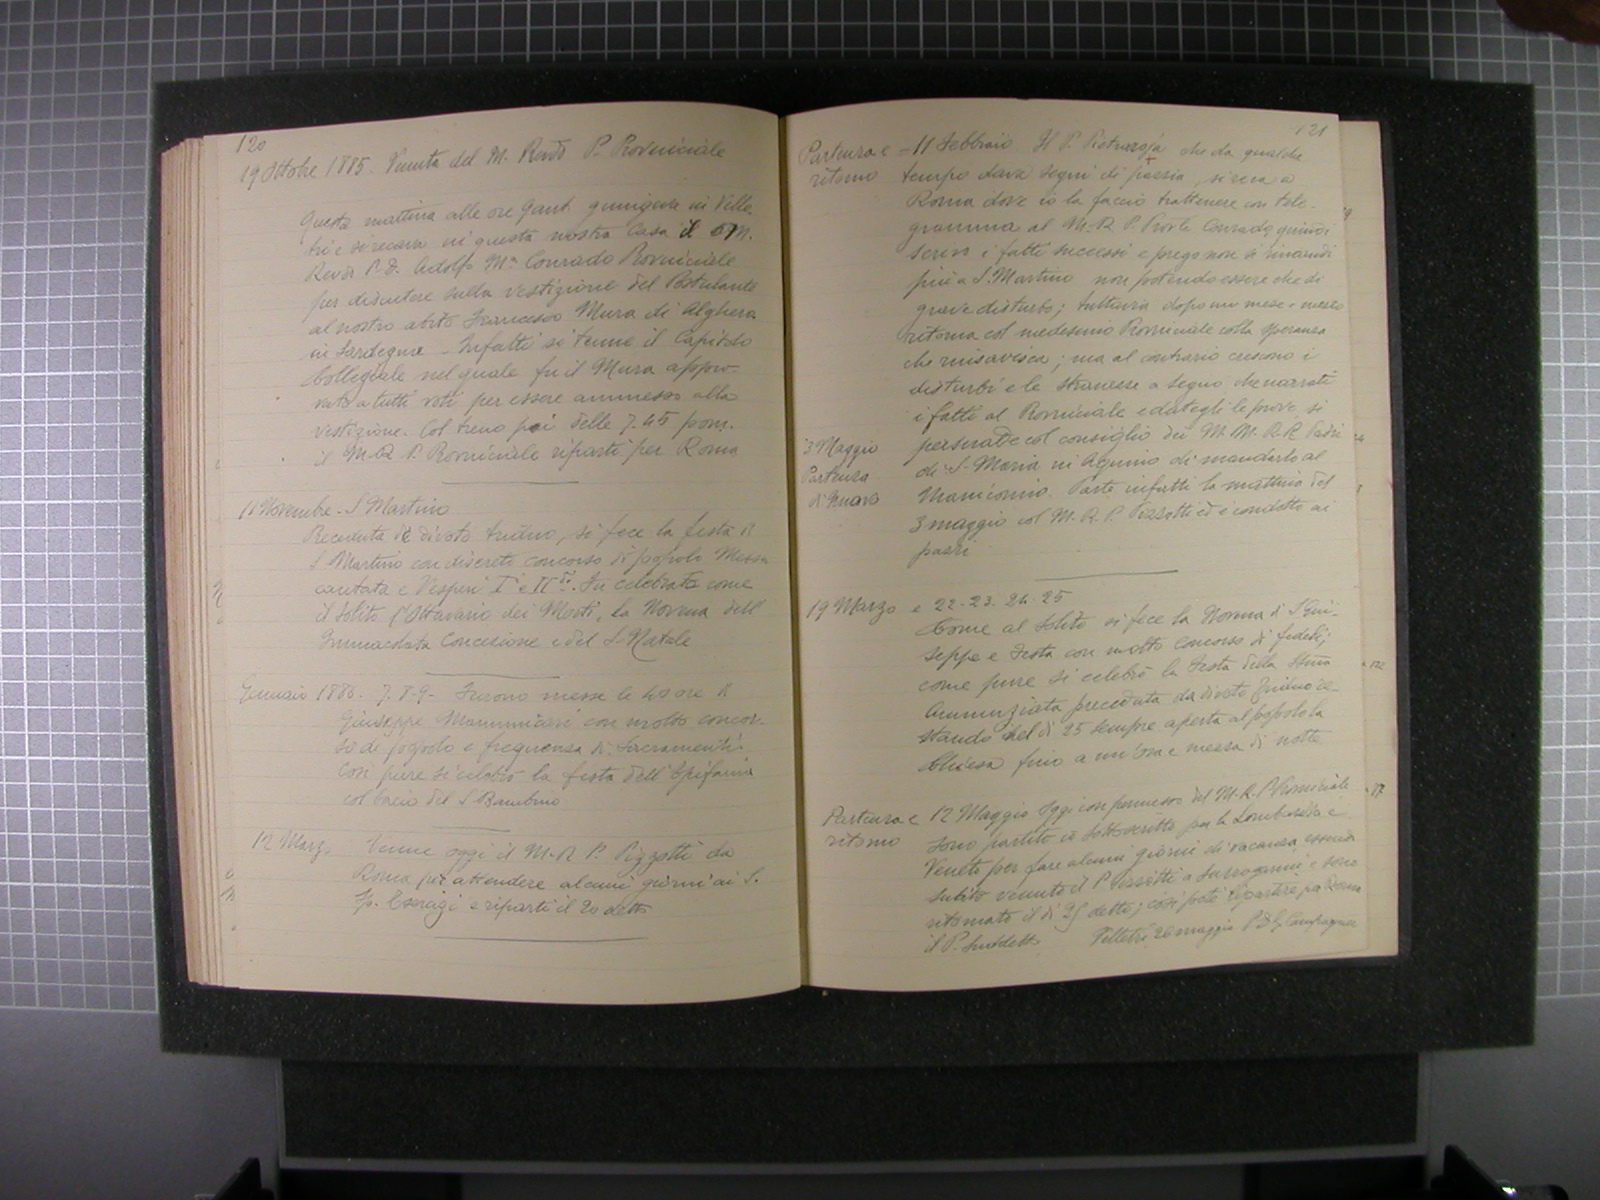 120
19 Ottobre 1885. Venuta del M. Revdo P. Provinciale
Questa mattina alle ore 9 ant. giungeva in Velle
tri e si recava in questa nostra Casa il M.
Revdo P. D. Adolfo Ma Conrado Provinciale
per discutere sulla vestizione del Postulante
al nostro abito Francesco Mura di Alghero
in Sardegna - Infatti si tenne il Capitolo
Collegiale nel quale fu il Mura appro-
vato a tutti voti per essere ammesso alla
vestizione. Col treno poi delle 7.45 pom.
il M.R. P. Provinciale ripartì per Roma
11 Novembre - S Martino
Preceduta di divoto triduo, si fece la festa di
S Martino con discreto concorso di popolo Messa
cantata e Vesperi I e II. Fu celebrata come
il solito l'Ottavario dei Morti, la Novena dell'
Immacolata Concezione e del S. Natale
Gennaio 1886. 7-8-9- Furono messe le 40 ore di
Giuseppe con molto concor-
so di popolo e frequenza di Sacramenti.
Così pure si celebrò la festa dell'Epifania
col bacio del S Bambino
12 Marzo Venne oggi il M.R. P. Pizzotti da
Roma per attendere alcuni giorni ai S.
Sp. Esercizi e ripartì il 20 detto
121
Partenza e - 11 Febbraio Il P. che da qualche
ritorno tempo dava segni di pazzia, si reca a
Roma dove io la faccio trattenere con tele-
gramma al M.R P. Conrado quindi
scrivo i fatti successi e prego non si rimandi
più a S. Martino non potendo essere che di
grave disturbo; tuttavia dopo un mese e mezzo
ritorna col medesimo Provinciale colla speranza
che rinsavisca; ma al contrario crescono i
disturbi e le stranezze a segno che narrati
i fatti al Provinciale e dategli le prove, si
3 Maggio persuade col consiglio dei M. M. R.R. Padri
Partenza di S. Maria in Aquiro di mandarlo al
di nuovo Manicomio. Parte infatti la mattina del
3 maggio col M.R.P. Pizzotti ed è condotto ai
pazzi
19 Marzo e 22-23-24-25
Come al solito si fece la Novena di S Giu-
seppe e Festa con molto concorso di fedeli;
come pure si celebrò la Festa della SSma
Annunziata preceduta da divoto Triduo re-
stando nel dì 25 sempre aperta al popolo la
Chiesa fino a un'ora e mezza di notte
Partenza e 12 Maggio Oggi con permesso del M.R.P. Provinciale
ritorno sono partito io sottoscritto per la Lombardia e
Veneto per fare alcuni giorni di vacanza, essendo
subito venuto il P. a surrogarmi e sono
ritornato il dì 25 detto; così poté ripartire per Roma
il P. suddetto Velletri 26 maggio P. D. G. Campagner